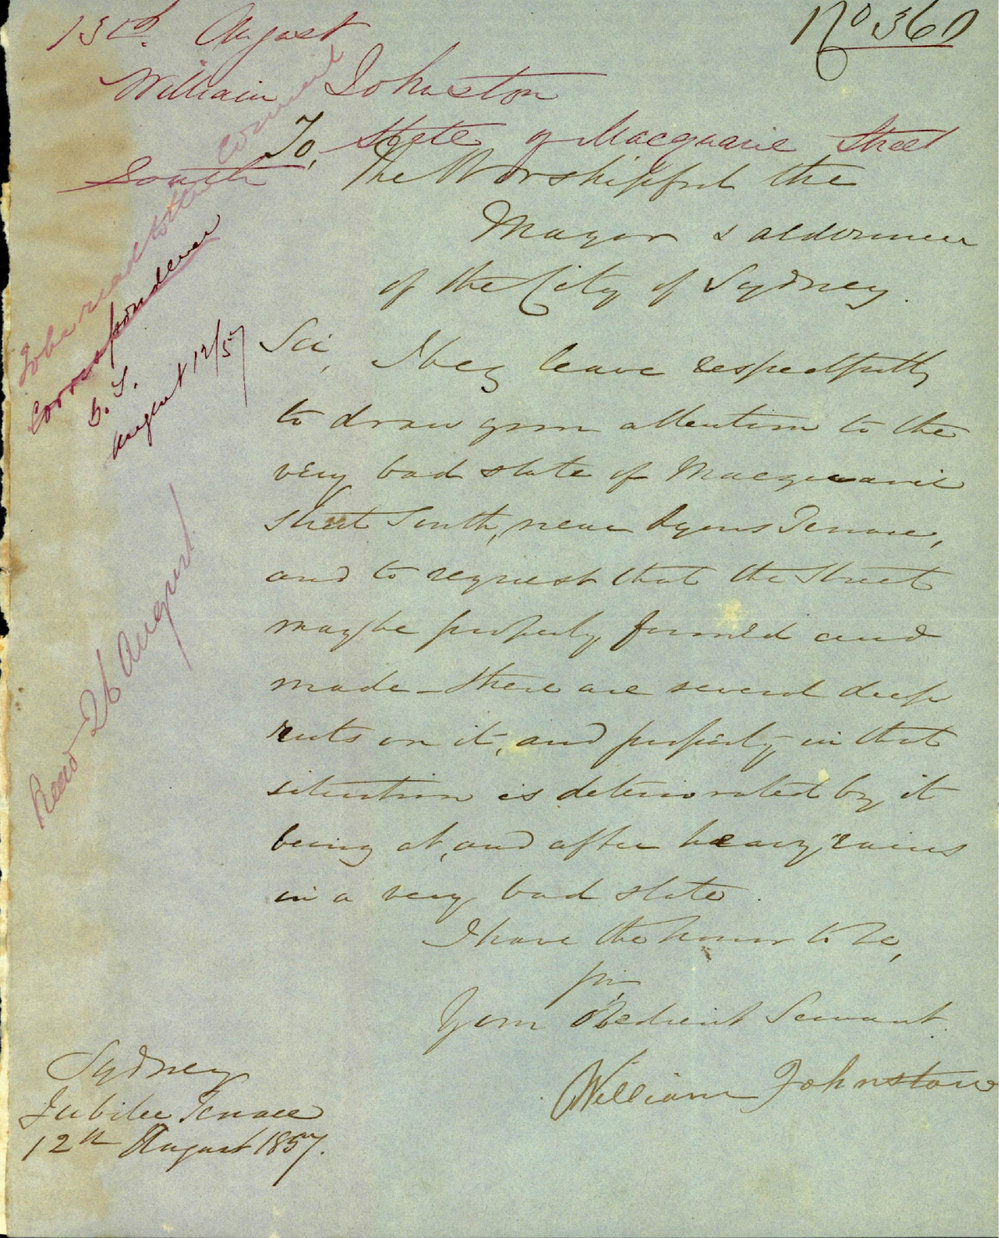 13th August
No 360
William Johnston
State of Macquarie Street
South
To,
The Worshipful the
Mayor & aldermen
of the City of Sydney.
To be read to the Council
Correspondence
August 12/57
Read 26 August
Sir, I beg leave respectfully
to draw your attention to the
very bad state of Macquarie
Street South, near Lyons Terrace,
and to request that the Street
may be properly formed and
made - there are several deep
ruts on it, and property in that
situation is deteriorated by it
being at, and after heavy rains
in a very bad state.
I have the honor to be,
Sir,
Your Obedient Servant.
William Johnston
Sydney
Jubilee Terrace
12th August 1857.